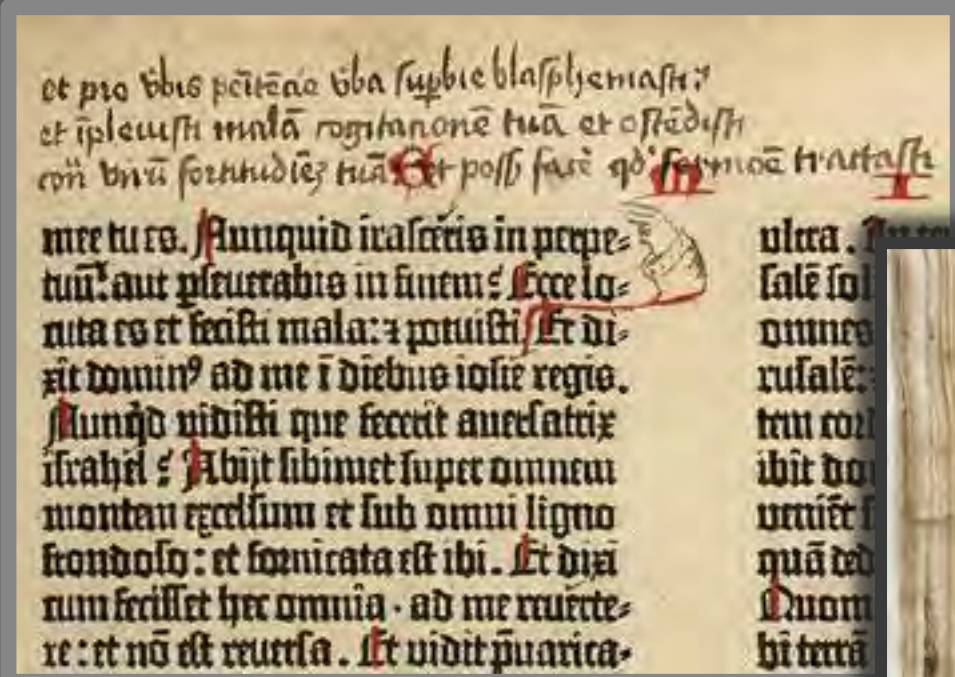 et pro v̄bis pēitēcie v̄ba sup̱bie blasphemasti ?
et īpleuisti malā cogitationē tuā et ostēdisti
virū fortitudīeꝫ tuā Et possꝫ facē qd' sermoē tractasti
mee tu es. Nunquid irasceris in perpe=
tuū: aut ꝑseuerabis in finem? Ecce lo=
cuta es et fecisti mala: ⁊ potuisti. Et di=
xit domin⁹ ad me ī diebus iosie regis.
Nunqͥd uidisti que fecerit auersatrix
israhel? Abijt sibimet super omnem
montem excelsum et sub omni ligno
frondoso: et fornicata est ibi. Et dixi
cum fecisset hec omnia. ad me reuerte=
re: et nō est reuersa. Et vidit p̄uarica=
ultra.
salē sol
omnes
rusalē:
tem
ibit do
ueniēt
quā ded
Quom
bi terrā